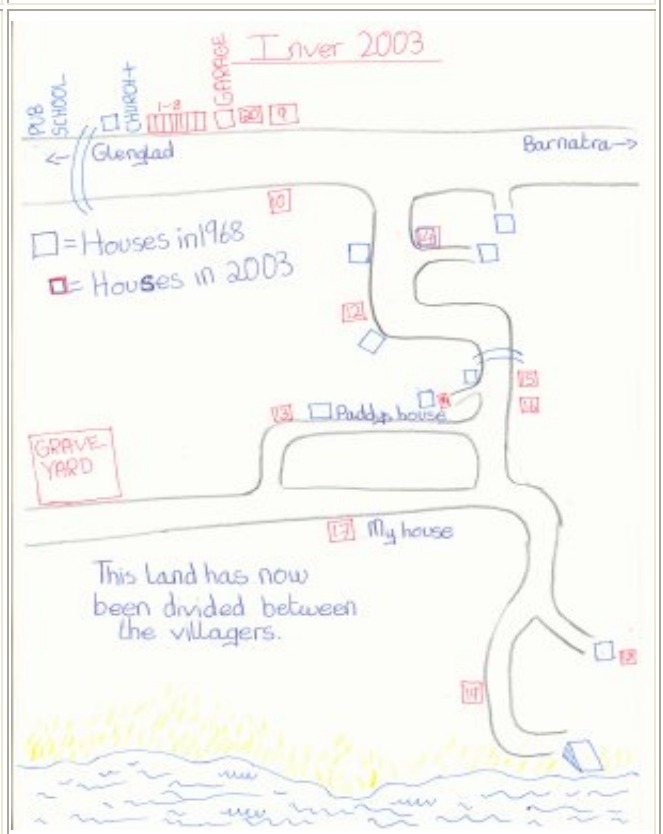 Inver 2003
PUB
SCHOOL
CHURCH
1-8
GARAGE
20
9
← Glenglad
Barnatra →
10
= Houses in 1968
= Houses in 2003
12
15
16
13
Paddys house
GRAVE-
YARD
17
My house
This Land has now
been divided between
the villagers.
18
19